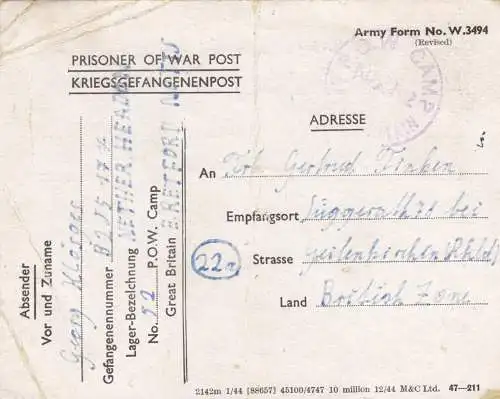 Army Form No. W.3494
(Revised)
PRISONER OF WAR POST
KRIEGSGEFANGENENPOST
CAMP
ADRESSE
An Gertrud Finken
Empfangsort Süggerath bei
Strasse Geilenkirchen (Rhld)
22a
Land British Zone
Absender
Vor und Zuname Georg
Gefangenennummer
Lager-Bezeichnung NETHER HEADON
No. 52 P.O.W. Camp
Great Britain RETFORD NOTTS
2142m 1/44 [88657] 45100/4747 10 million 12/44 M&C Ltd. 47—211